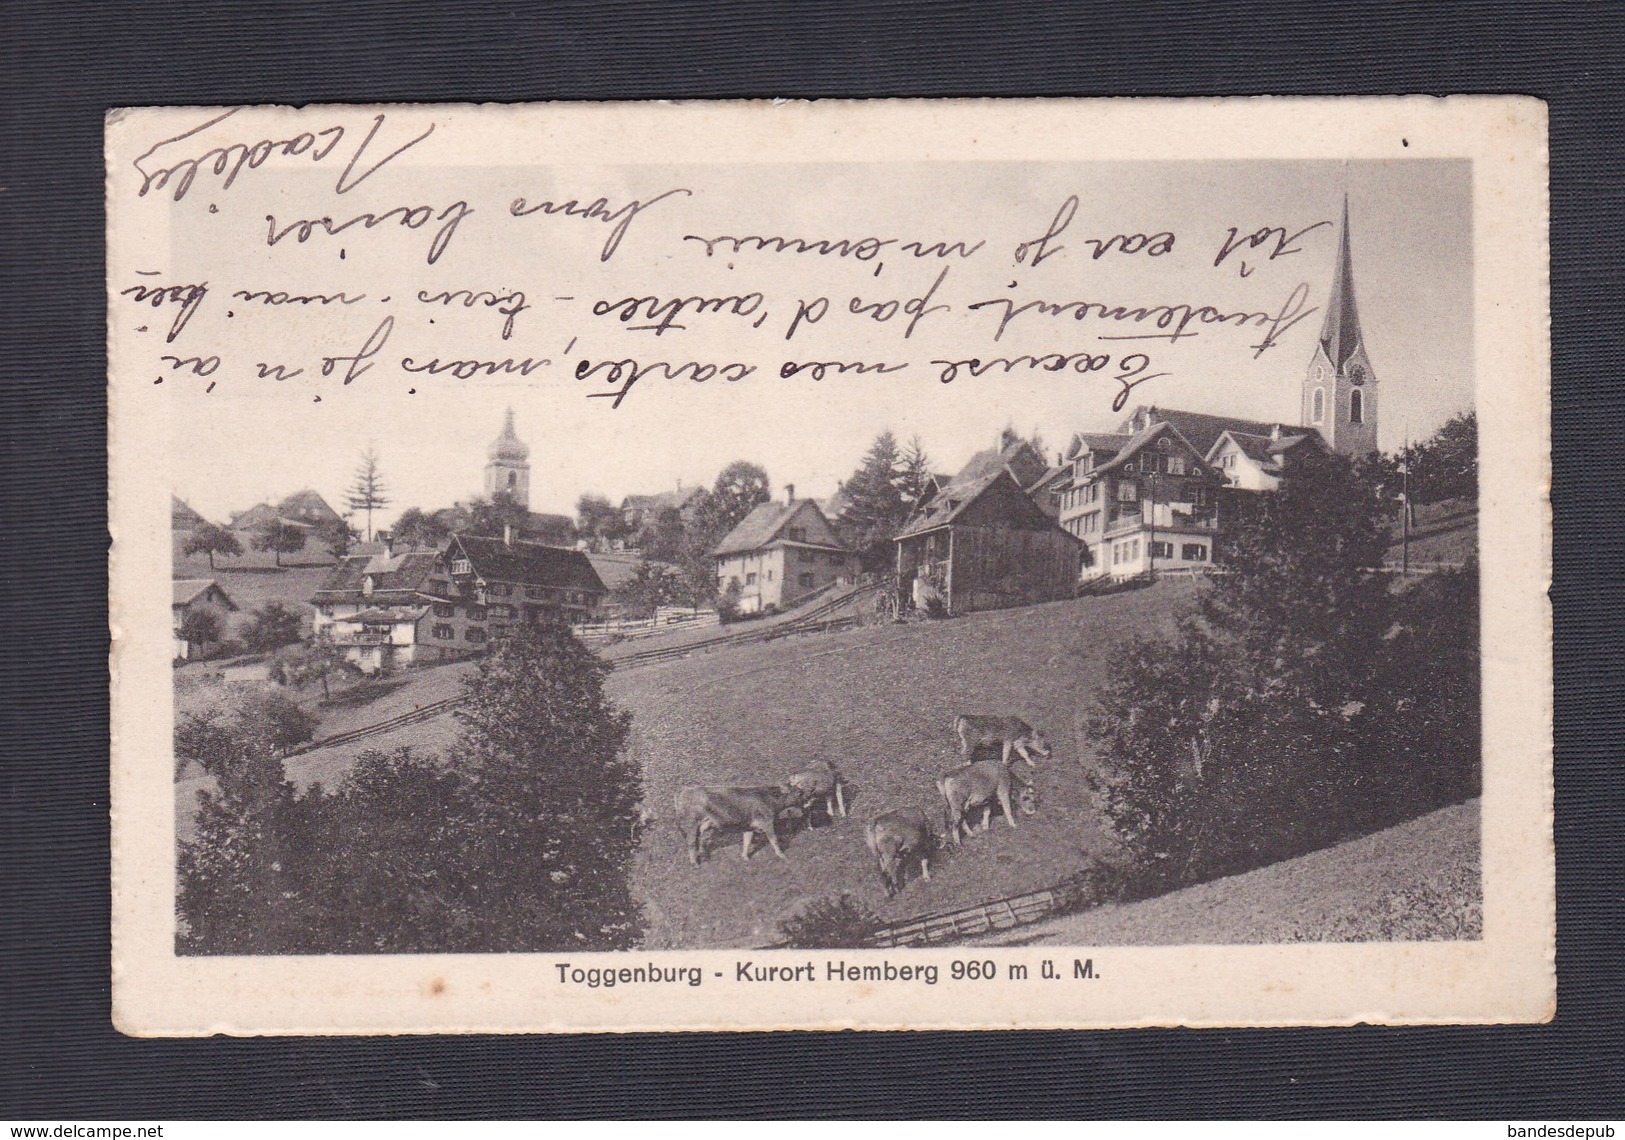 Excuse mes cartes, mais je n'ai
justement pas d'autres - écris-moi bien
tôt car je m'ennuie
bons baiser
Toggenburg - Kurort Hemberg 960 m ü. M.
www.delcampe.net
bandesdepub